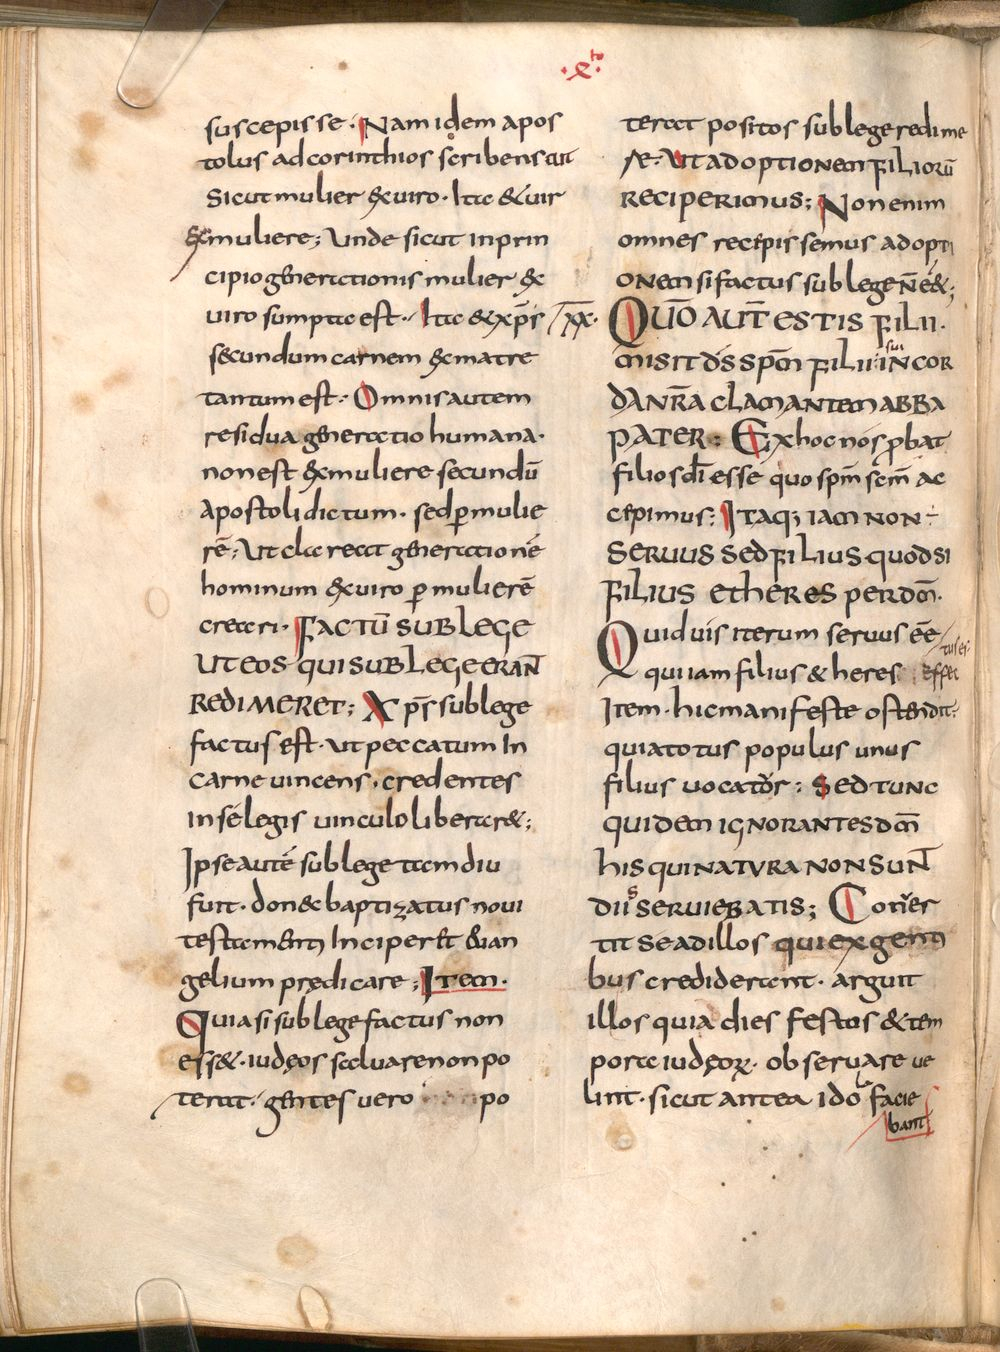 ·x·to
suscepisse· Nam idem apos
tolus adcorinthios scribens ait
Sicut mulier &uiro· Ita & uir
exmuliere; Unde sicut inprin
cipio generationis mulier ex
uiro sumpta est· Ita & xp̄s
secundum carnem exmatre
tantum est· Omnis autem
residua generatio humana·
non est exmuliere secundū
apostoli dictum· sed ꝑ mulie
rē; Ut clareat generationē
hominum exuiro ꝑ mulierē
creari· FACTŪ SUB LEGE
UTEOS QUI SUB LEGE ERANT
REDIMERET; Xp̄s sub lege
factus est· ut peccatum In
carne uincens· credentes
in sé legis uinculo liberar&;
Ipse autē sub lege tamdiu
fuit· donec baptizatus noui
testamenti Inciper& euan
gelium prędicare; Item·
Quia si sub lege factus non
ess&· iudęos saluare non po
terat· gentes uero po
terat positos sub lege redime
re· Ut adoptionem FILIORŪ
RECIPERIMUS; Non enim
omnes recepissemus adopti
onem si factus sub lege ñ eēt;
XX· QUŌ AUT̄ ESTIS FILII·
MISIT D̄S SP̄M FILII sui IN COR
DA NR̄A CLAMANTEM ABBA
PATER: Ex hoc nos ꝓbat
filios dī esse quo sp̄m sc̄m ac
cepimus: ITAQ; IAM NON÷
SERUUS SED FILIUS· QUOD SI
FILIUS ET HERES PER DM̄·
Quid uis iterum seruus eē
qui iam filius & heres effec
tus es·
Item· hic manifeste ostendit·
quia totus populus unus
filius uocatōr: Sed tunc
QUIDEM IGNORANTES DM̄
HIS QUI NATURA NON SUNT
DIIS SERUIEBATIS; Conuer
tit se ad illos qui ex genti
bus crediderant· arguit
illos quia dies festos & tem
pora iudęoꝝ· obseruare ue
lint· sicut antea idola facie
bant